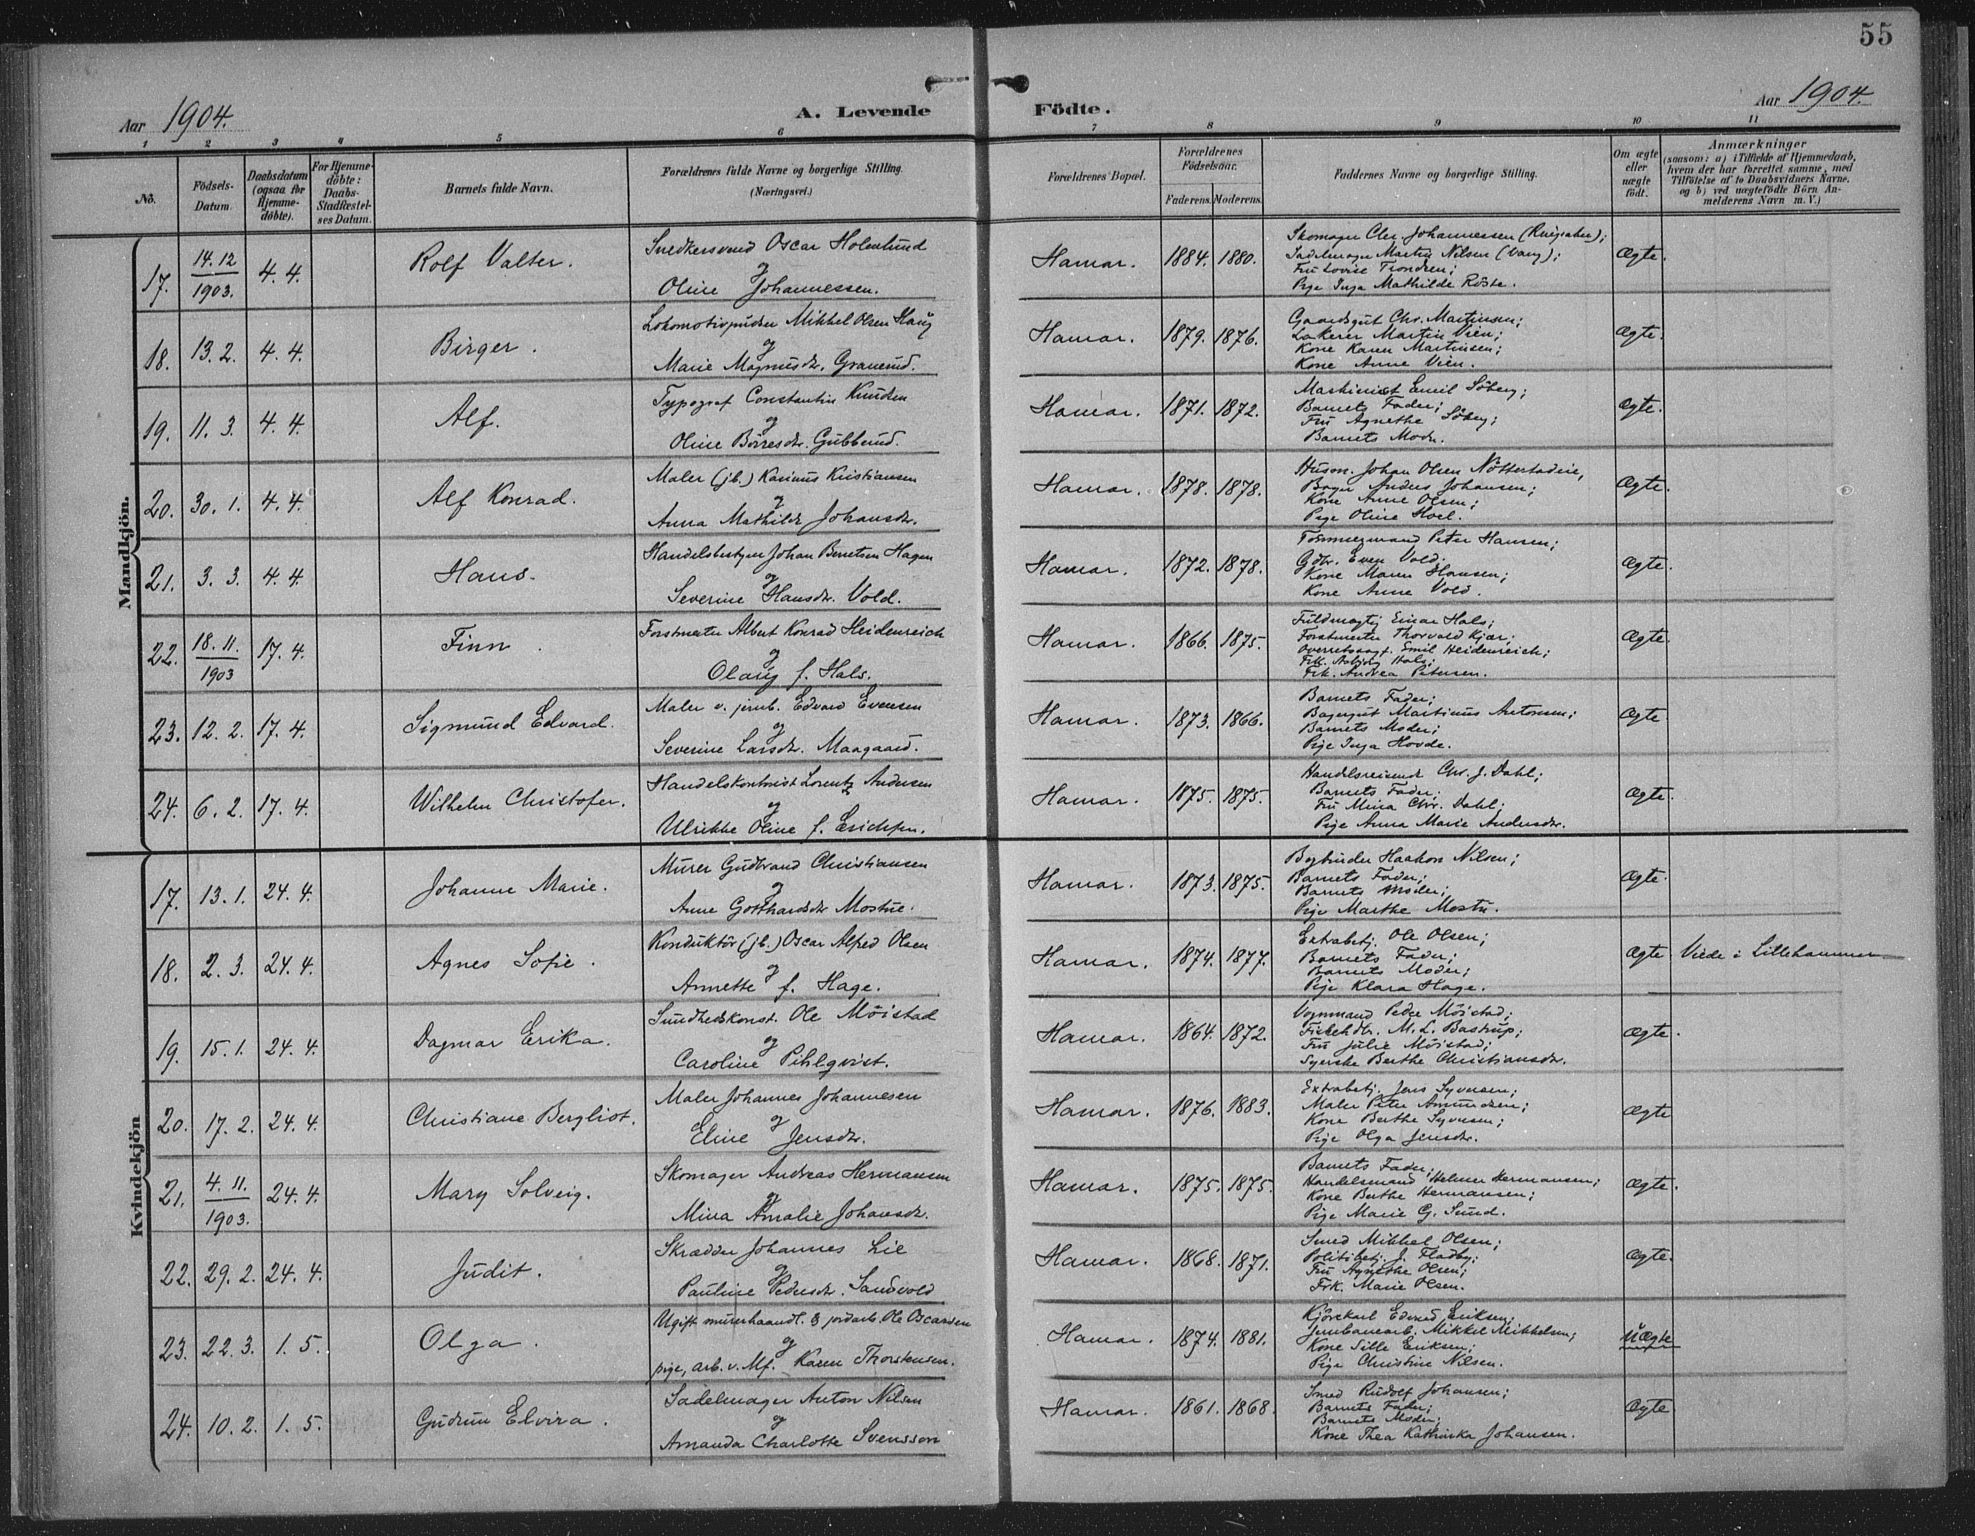 55
Aar 1904.
A. Levende Födte.
Aar 1904.
1 2 3 4 5 6 7 8 9 10 11
No.
Födsels-Datum.
Daabsdatum (ogsaa for Hjemme-döbte).
For Hjemme-döbte: Daabs-Stadfestel-ses Datum.
Barnets fulde Navn.
Forældrenes fulde Navne og borgerlige Stilling. (Næringsvei.)
Forældrenes Bopæl.
Forældrenes Födselsaar.
Faderens. Moderens.
Faddernes Navne og borgerlige Stilling.
Om ægte eller uægte födt.
Anmærkninger
(saasom: a) i Tilfælde af Hjemmedaab,
hvem der har forrettet samme, med
Tilföielse af to Daabsvidners Navne,
og b) ved uægtefödte Börn An-
melderens Navn m. V.)
Mandkjön.
17. 14.12 1903. 4.4. Rolf Valter.
Snedkersvend Oscar Holmlund
og
Oline Johannessen.
Hamar. 1884. 1880.
Skomager Chr. Johannessen
Sadelmager Martin Nilsen (Vang);
Fru Lovise Trondsen;
Pige Inga Mathilde Röste.
Ægte.
18. 13.2. 4.4. Birger.
Lokomotivpudser Mikkel Olsen Haug
og
Marie Magnusdr. Graverud.
Hamar. 1879. 1876.
Gaardsgut Chr. Martinsen;
Lakerer Martin Vien;
Kone Karen Martinsen;
Kone Anne Vien.
Ægte.
19. 11.3. 4.4. Alf.
Typograf Constantin Knudsen
og
Oline Börresdr. Gubberud.
Hamar. 1871. 1872.
Maskinist Emil Söberg;
Barnets Fader;
Fru Agnethe Söberg;
Barnets Moder.
Ægte.
20. 30.1. 4.4. Alf Konrad.
Maler (jb.) Karinus Kristiansen
og
Anna Mathilde Johansdr.
Hamar. 1878. 1878.
Husm. Johan Olsen
Bager Anders Johansen;
Kone Anne Olsen;
Pige Oline Hoel.
Ægte.
21. 3.3. 4.4. Hans.
Handelsbestyrer Johan Berntsen Hagen
og
Severine Hansdr. Vold.
Hamar. 1872. 1878.
Tömmermand Peter Hansen;
Gdbr. Even Vold.
Kone Maren Hansen;
Kone Anne Vold.
Ægte.
22. 18.11. 1903 17.4. Finn.
Forstmester Albert Konrad Heidenreich
og
Olaug f. Hals.
Hamar. 1866. 1875.
Fuldmægtig Einar Hals;
Forstmester Thorvald Kjær;
Overretssagf. Emil Heidenreich;
Frk. Asbjörg Hals;
Frk. Andrea Petersen.
Ægte.
23. 12.2. 17.4. Sigmund Edvard.
Maler v. jernb. Edvard Evensen
og
Severine Larsdr. Maagaard.
Hamar. 1873. 1866.
Barnets Fader;
Bagergut Martinus Antonsen;
Barnets Moder;
Pige Inga Hovde.
Ægte.
24. 6.2. 17.4. Wilhelm Christofer.
Handelskontorist Lorentz Andersen
og
Ulrikke Oline f. Erichsen.
Hamar. 1875. 1875.
Handelsreisende Chr. J. Dahl;
Barnets Fader;
Fru Mina Chr. Dahl;
Pige Anna Marie Andersdr.
Ægte.
Kvindekjön
17. 13.1. 24.4. Johanne Marie.
Murer Gudbrand Christiansen
og
Anne Gotthardsdr Mostue.
Hamar. 1873. 1875.
Bogbinder Haakon Nilsen;
Barnets Fader;
Barnets Moder;
Pige Marthe Mostu.
Ægte.
18. 2.3. 24.4. Agnes Sofie.
Konduktör (jb.) Oscar Alfred Olsen
og
Annette f. Hage.
Hamar. 1874. 1877.
Extrabetj. Ole Olsen;
Barnets Fader;
Barnets Moder;
Pige Klara Hage.
Ægte Viede i Lillehammer
19. 15.1. 24.4. Dagmar Erika.
Sundhedskonst. Ole Möistad
og
Caroline Pihlqvist.
Hamar. 1864. 1872.
Vognmand Peder Möistad;
Fiskehdlr. M. L. Bastrup;
Fru Julie Möistad;
Syerske Berthe Christiansdr.
Ægte.
20. 17.2. 24.4. Christiane Bergliot.
Maler Johannes Johannesen
og
Eline Jensdr.
Hamar. 1876. 1883.
Extrabetj. Jens Syversen;
Maler Peter Amundsen;
Kone Berthe Syversen;
Pige Olga Jensdr.
Ægte
21. 4.11. 1903. 24.4. Mary Solveig.
Skomager Andreas Hermansen
og
Mina Amalie Johansdr.
Hamar. 1875. 1875.
Barnets Fader;
Handelsmand Helmer Hermansen;
Kone Berthe Hermansen;
Pige Marie G. Sund.
Ægte.
22. 29.2. 24.4. Judit.
Skrædder Johannes Lie
og
Pauline Pedersdr. Sandvold
Hamar. 1868. 1871.
Smed Mikkel Olsen;
Politibetj. J. Fladby;
Fru Agnethe Olsen;
Frk. Marie Olsen.
Ægte.
23. 22.3. 1.5. Olga.
Ugift murerhaandl. & jordarb. Ole Oscarsen
og
pige, arb. v. Mf. Karen Thorstensen.
Hamar. 1874. 1881.
Kjörekarl Edvard Eriksen;
Jernbanearb. Mikkel Mikkelsen;
Kone Sille Eriksen;
Pige Christine Nilsen.
Uægte
24. 10.2. 1.5. Gudrun Elvira.
Sadelmager Anton Nilsen
og
Amanda Charlotte Svensson
Hamar. 1861. 1868.
Smed Rudolf Johansen;
Barnets Fader;
Barnets Moder;
Kone Thea Kathinka Johansen.
Ægte